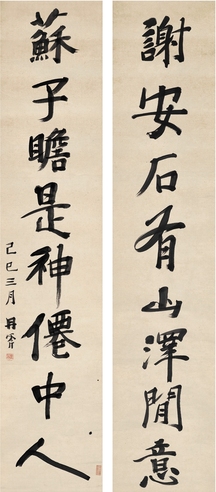 謝安石有山澤閒意
蘇子瞻是神僊中人
己巳三月 昇霄